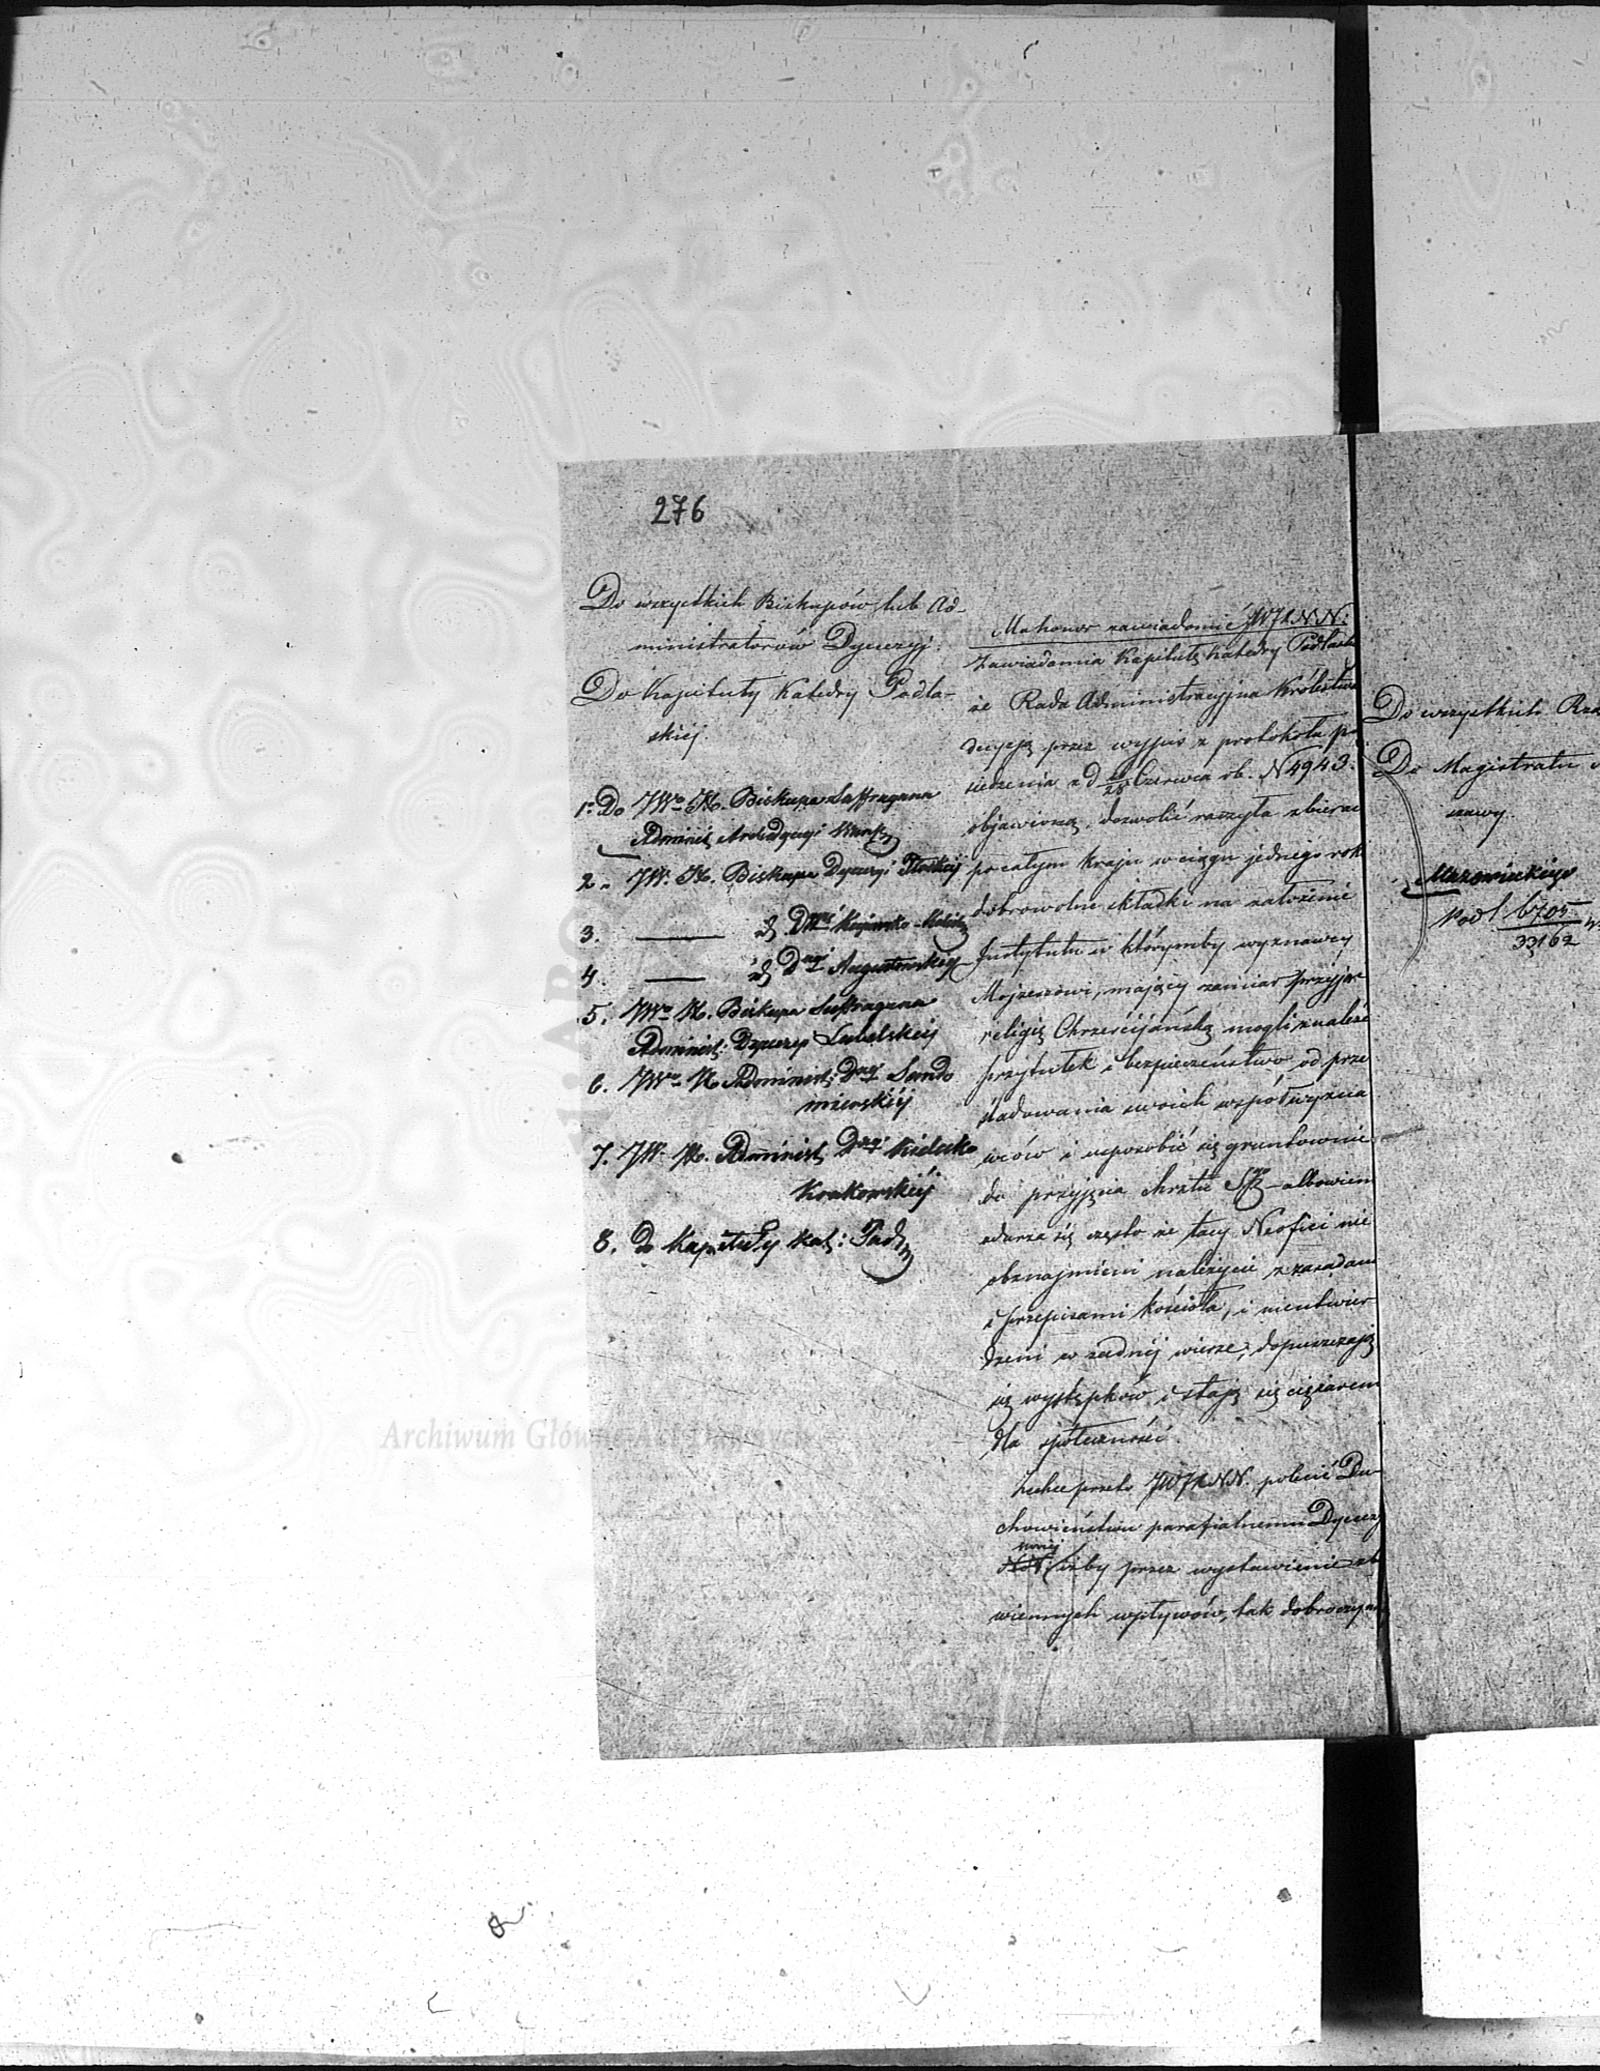 276
Do wszystkich Biskupów lub Ad-
ministratorów Dyecezyj.
Do Kapituły Katedry Podla-
skiéj.
1. Do JWo X. Biskupa Suffragana
Adminis Archidyecezyi Warsz
2. JW. X. Biskupa Dyecezyi Płockiéj
3. — d Dyi Kujawsko-Kalisk
4 — d Dyi Augustowskiéj
5. JWo X. Biskupa Suffragana
Administ: Dyecezyi Lubelskiéj
6. JWo X Administ: Dyi Sando
mierskiéj
7. JW. X. Administ: Dyi Kielecko
Krakowskiéj
8. do Kapituły Kat: Podl
Ma honor zawiadomić JWJXNN:
Zawiadamia Kapitułę Katedry Podlask
że Rada Administracyjna Królestwa
decyzją przez wypis z protokołu po
siedzenia z d Czerwca rb. N 4943.
objawioną, dozwolić raczyła zbierać
po całym kraju w ciągu jednego rok
dobrowolne składki na założenie
Instytutu w którymby wyznawcy
Mojżeszowi, mający zamiar przyjąć
religię Chrześcijańską mogli znaleść
przytułek i bezpieczeństwo od prze
śladowania swoich współwyzna
wców i usposobić się gruntownie
do przyjęcia chrztu Sgo - albowiem
zdarza się często że tacy Neofici nie
obznajmieni należycie z zasadami
i przepisami kościoła, i nieutwier
dzeni w żadnéj wierze, dopuszczają
się występków i stają się ciężarem
dla społeczności.
Zechce przeto JWJXNN. polecić Du-
chowieństwu parafialnemu Dyecezy
NN: iżby przez wystawienie zb
wiennych wpływów, tak dobroczyn
Do wszystkich Rzą
Do Magistratu
szawy.
Mazowieckiego
Podl 6705
33162
Archiwum Główne Akt Dawnych